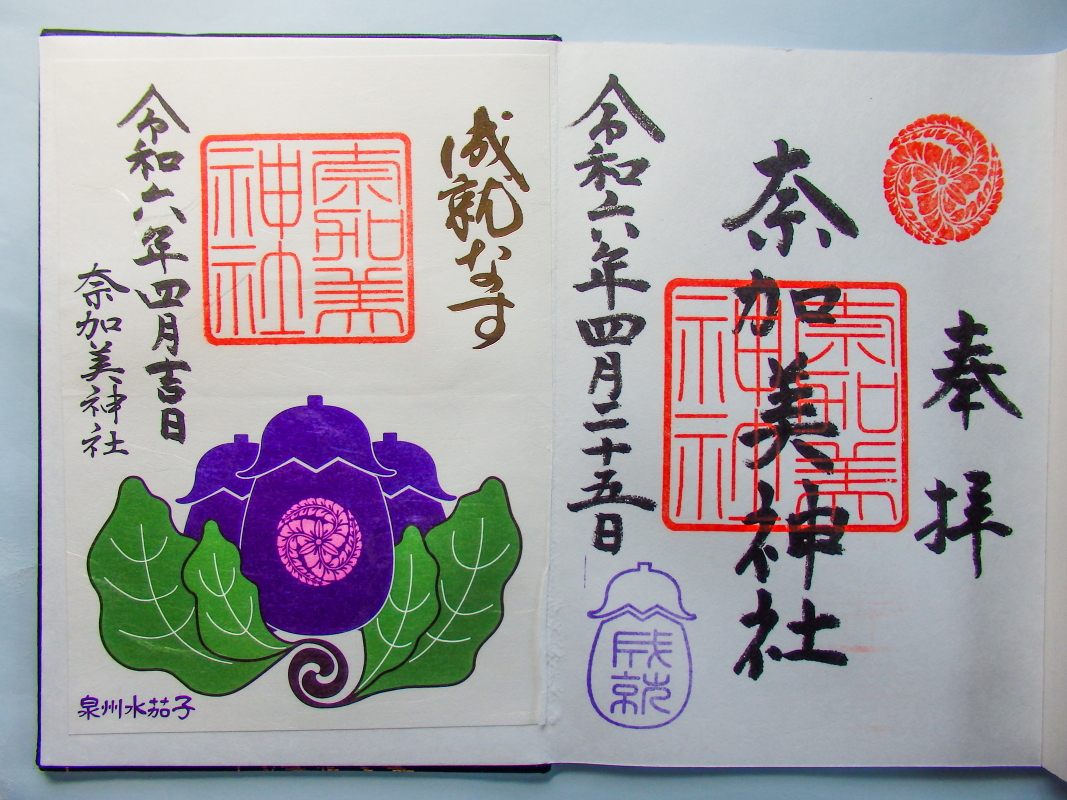 奉拝
奈加美神社
奈加美神社
令和六年四月二十五日
成就
成就なす
奈加美神社
令和六年四月吉日
奈加美神社
泉州水茄子